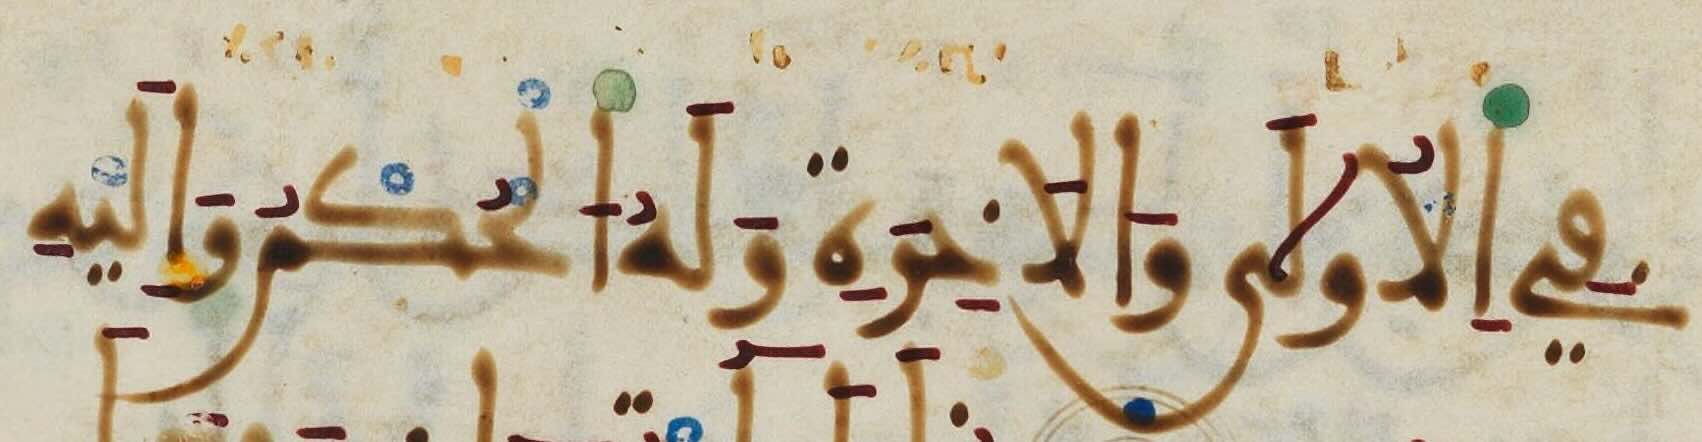 في الاولى والاخرة وله الحكم واليه